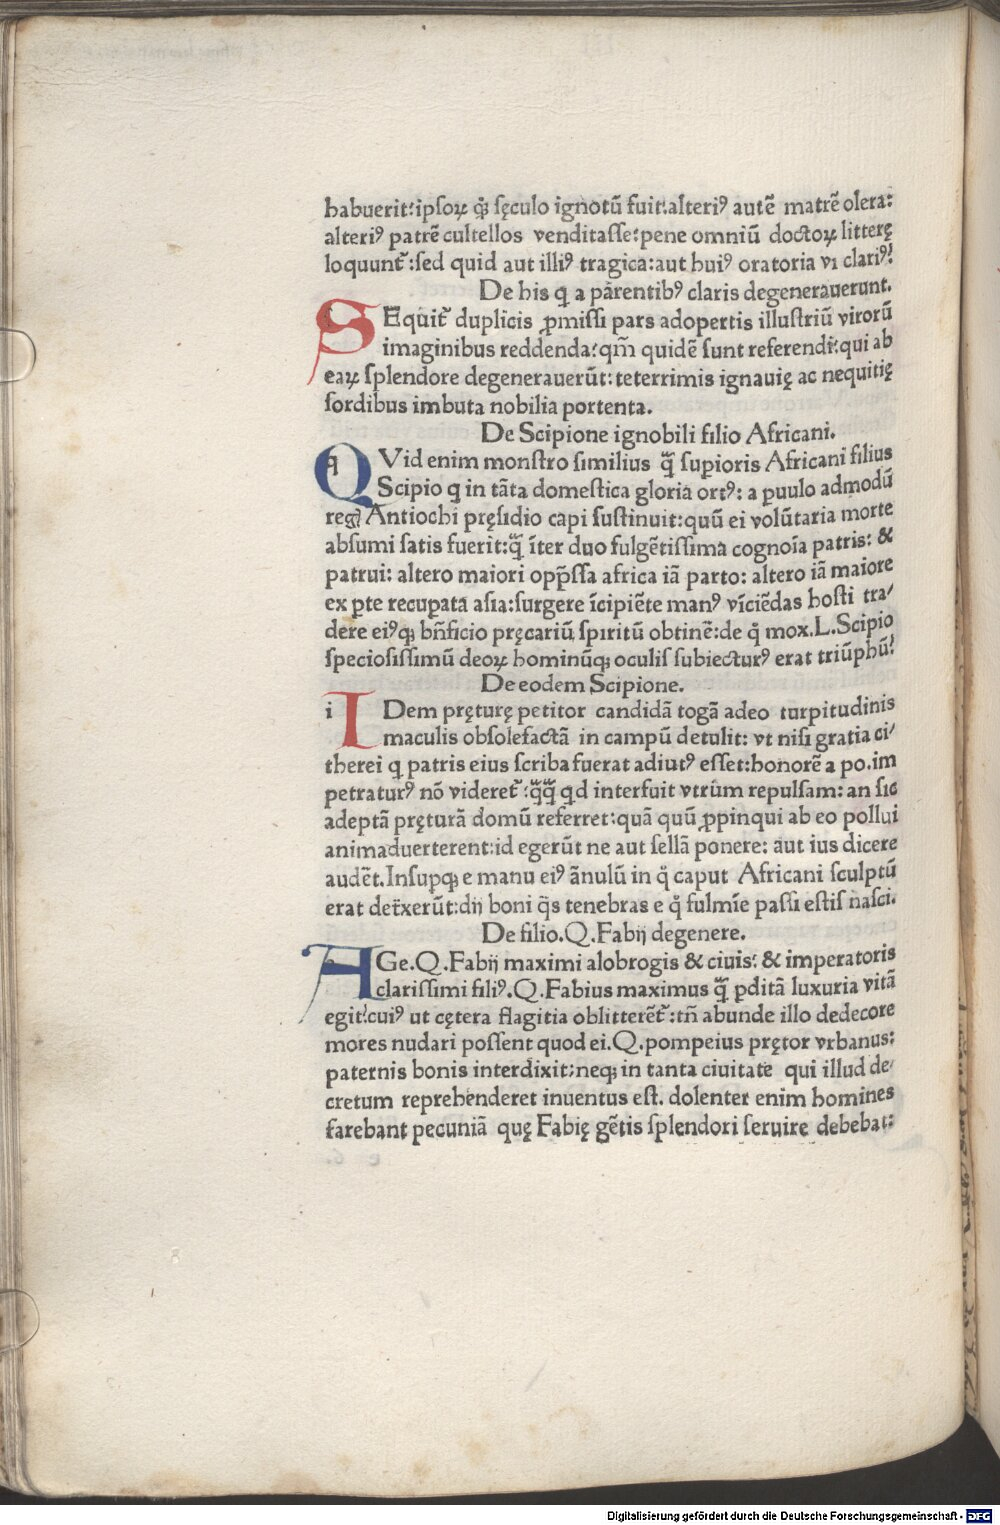 habuerit:ipsoꝝ q̃ꝫ sęculo ignotũ fuit:alteriꝰ autẽ matrẽ olera:
alteriꝰ patrẽ cultellos venditasse:pene omniũ doctoꝝ litterę
loquunt᷑:sed quid aut illiꝰ tragica:aut huiꝰ oratoria vi clariꝰ?
De his q̃ a parentibꝰ claris degenerauerunt.
SEquit᷑ duplicis ꝓmissi pars adopertis illustriũ virorũ
imaginibus reddenda:qm̃ quidẽ sunt referendi:qui ab
eaꝝ splendore degenerauerũt:teterrimis ignauię ac nequitię
sordibus imbuta nobilia portenta.
De Scipione ignobili filio Africani.
q QVid enim monstro similius q̃ supioris Africani filius
Scipio q in tãta domestica gloria ortꝰ: a puulo admodũ
regꝭ Antiochi pręsidio capi sustinuit:quũ ei volũtaria morte
absumi satis fuerit:q̃ ĩter duo fulgẽtissima cognoĩa patris: &
patrui: altero maiori opp̃ssa africa iã parto: altero iã maiore
ex ꝑte recupata asia:surgere ĩcipiẽte manꝰ vĩciẽdas hosti tra/
dere eiꝰqꝫ bñficio pręcariũ spiritũ obtinẽ:de q̊ mox.L.Scipio
speciosissimũ deoꝝ hominũqꝫ oculis subiecturꝰ erat triũphũ?
De eodem Scipione.
i IDem pręturę petitor candidã togã adeo turpitudinis
maculis obsolefactã in campũ detulit: vt nisi gratia ci/
therei q patris eius scriba fuerat adiutꝰ esset:honorẽ a po.im
petraturꝰ nõ videret᷑:q̃q̃ qd interfuit vtrum repulsam: an sic
adeptã pręturã domũ referret:quã quũ ꝓpinqui ab eo pollui
animaduerterent:id egerũt ne aut sellã ponere: aut ius dicere
audẽt.Insupqꝫ e manu eiꝰ ãnulũ in q̊ caput Africani sculptũ
erat det̃xerũt:dij boni q̃s tenebras e q̊ fulmĩe passi estis nasci.
De filio.Q.Fabij degenere.
AGe.Q.Fabij maximi alobrogis & ciuis: & imperatoris
clarissimi filiꝰ.Q.Fabius maximus q̃ ꝑditã luxuria vitã
egit?cuiꝰ ut cętera flagitia oblitterẽt᷑:tñ abunde illo dedecore
mores nudari possent quod ei.Q.pompeius prętor vrbanus:
paternis bonis interdixit:neqꝫ in tanta ciuitate qui illud de/
cretum reprehenderet inuentus est. dolenter enim homines
farebant pecuniã quę Fabię gẽtis splendori seruire debebat:
Digitalisierung gefördert durch die Deutsche Forschungsgemeinschaft - DFG